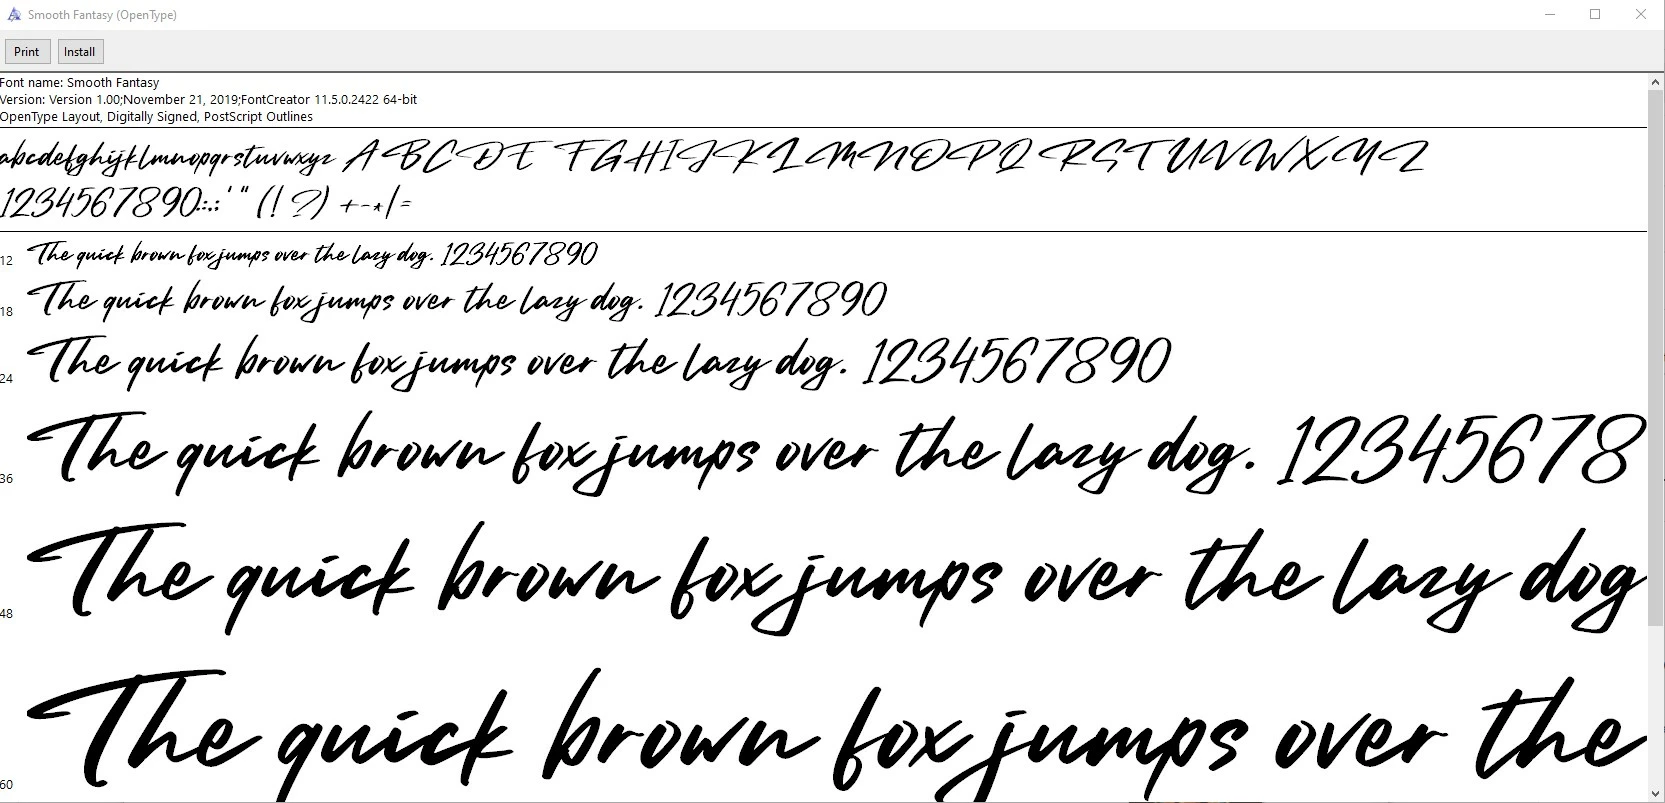 Smooth Fantasy (OpenType)
Print Install
Font name: Smooth Fantasy
Version: Version 1.00;November 21, 2019;FontCreator 11.5.0.2422 64-bit
OpenType Layout, Digitally Signed, PostScript Outlines
abcdefghijklmnopqrstuvwxyz ABCDEFGHIJKLMNOPQRSTUVWXYZ
1234567890.:,; ' " (! ?) +-*/=
12 The quick brown fox jumps over the lazy dog. 1234567890
18 The quick brown fox jumps over the lazy dog. 1234567890
24 The quick brown fox jumps over the lazy dog. 1234567890
36 The quick brown fox jumps over the lazy dog. 12345678
48 The quick brown fox jumps over the lazy dog
60 The quick brown fox jumps over the